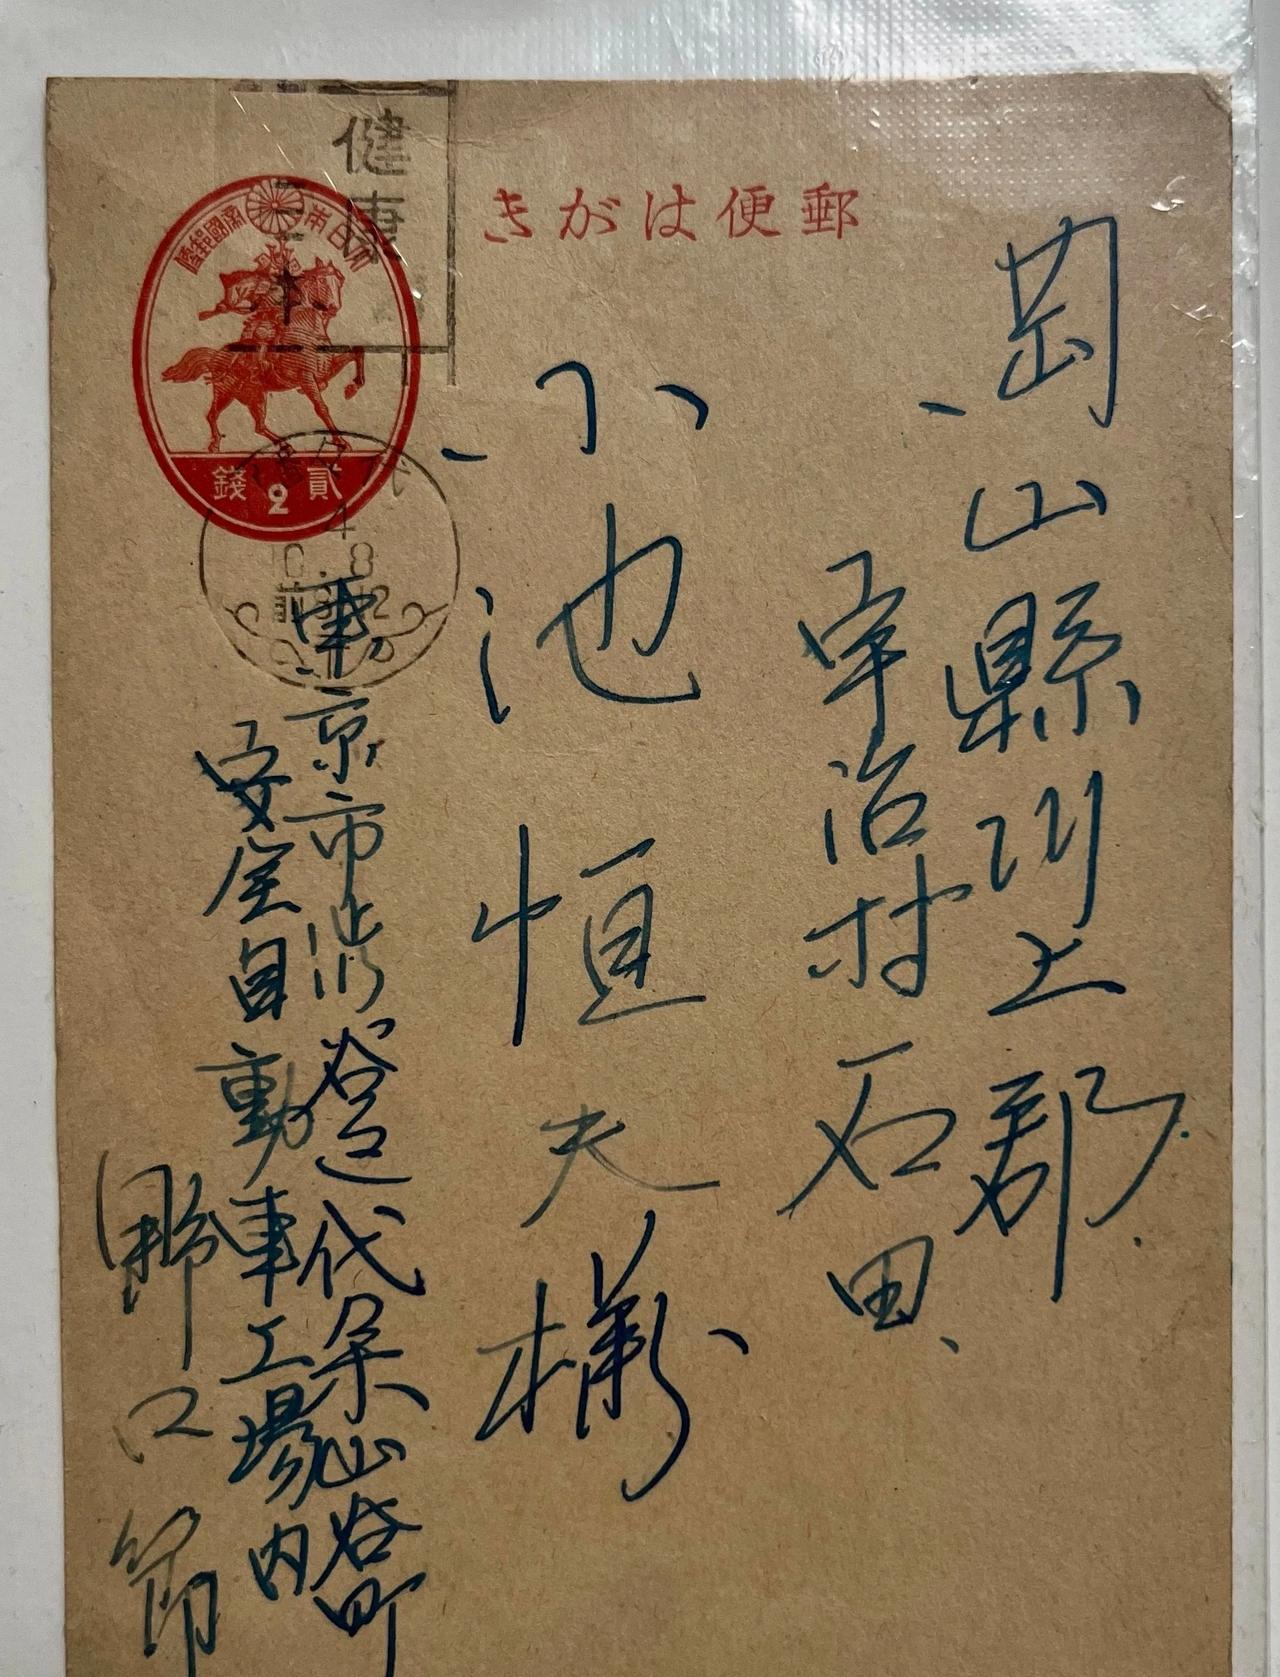 郵便はがき
岡山縣川上郡
宇治村石田
小池恒夫様
東京市渋谷区代々木山谷町
安全自動車工場内
野口節
大日本帝國郵便
貳錢
2
健康
代
4
10.8
前8-12